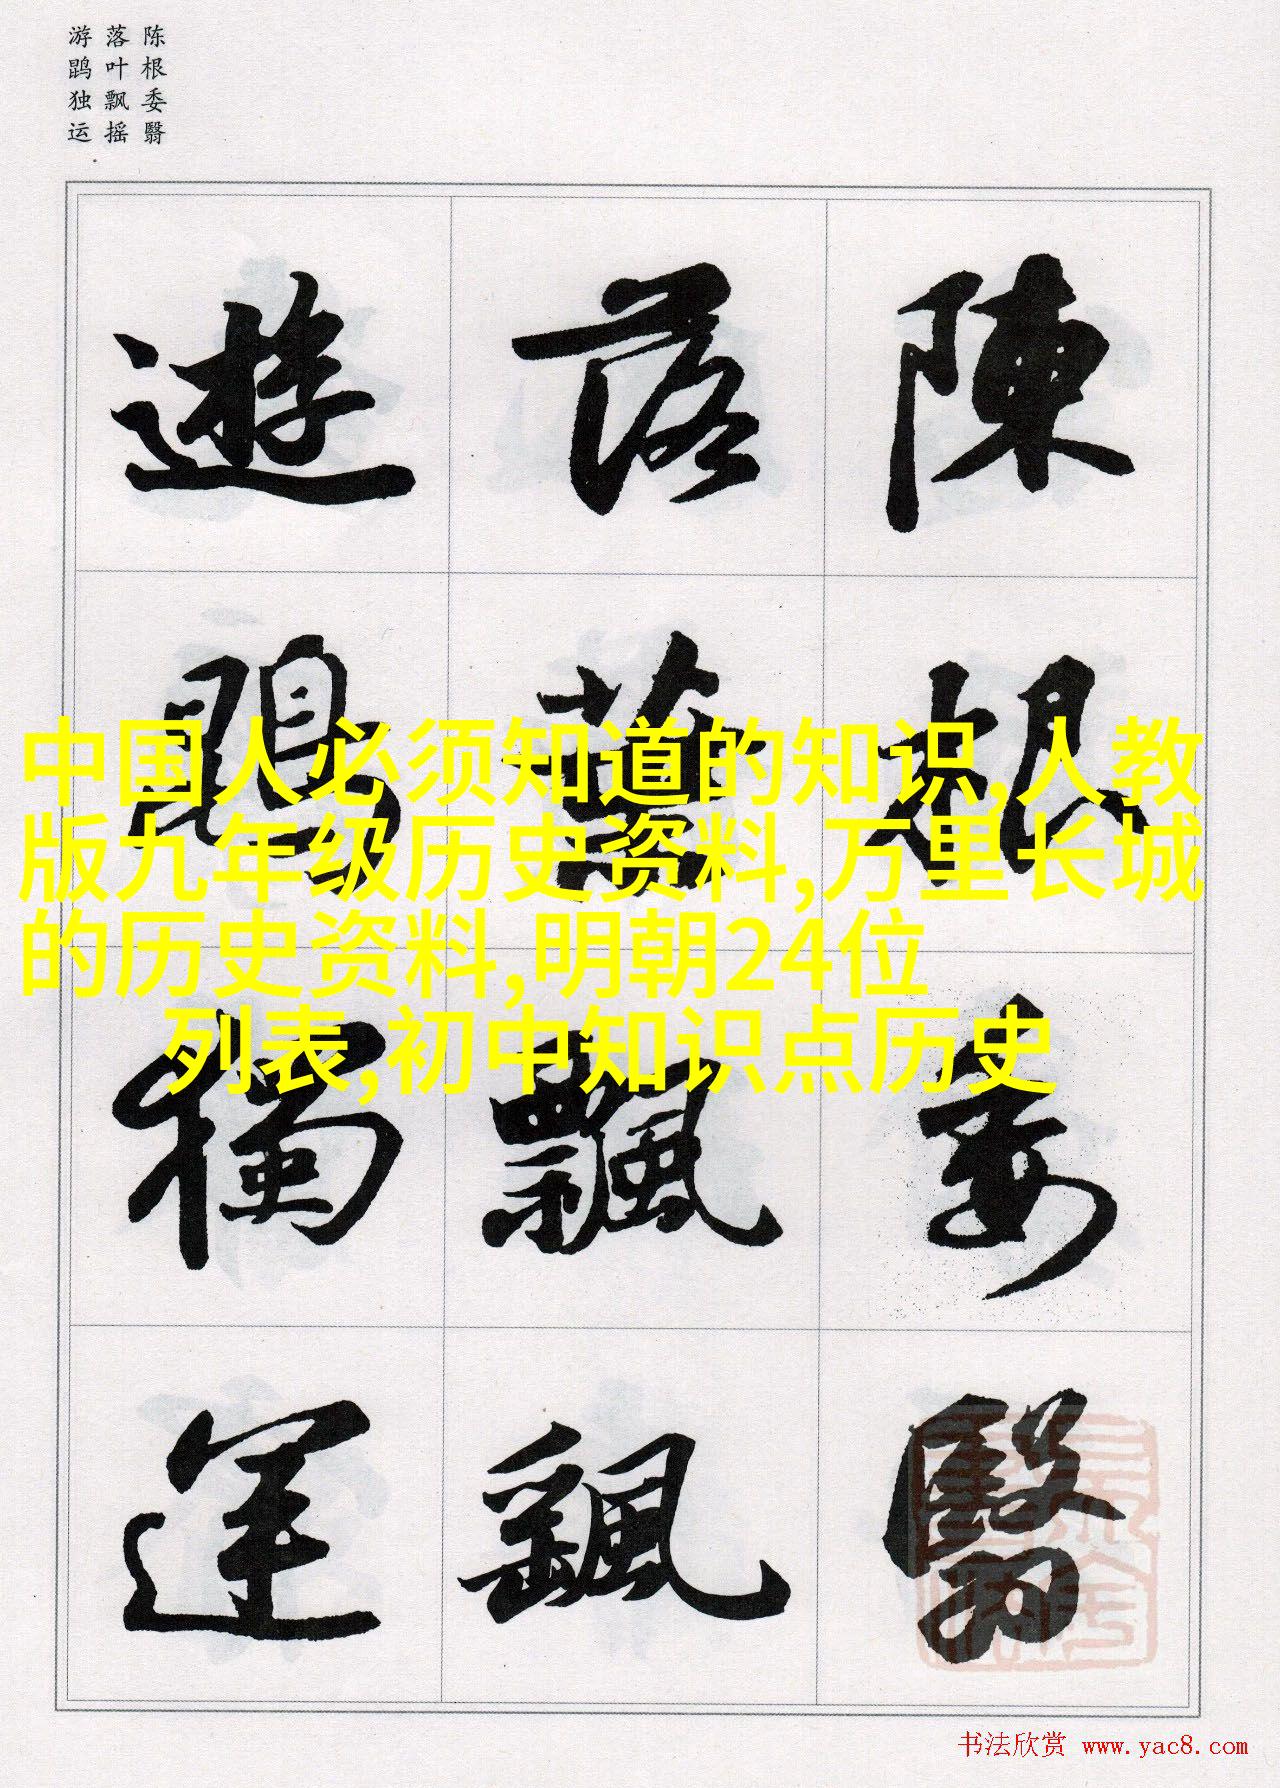 陈根委翳
落叶飘摇
游鹍独运
陳根委翳
落葉飄颻
遊鵾獨運
中国人必须知道的知识,人教
版九年级历史资料,万里长城
的历史资料,明朝24位
列表,初中知识点历史
书法欣赏 www.yac8.com